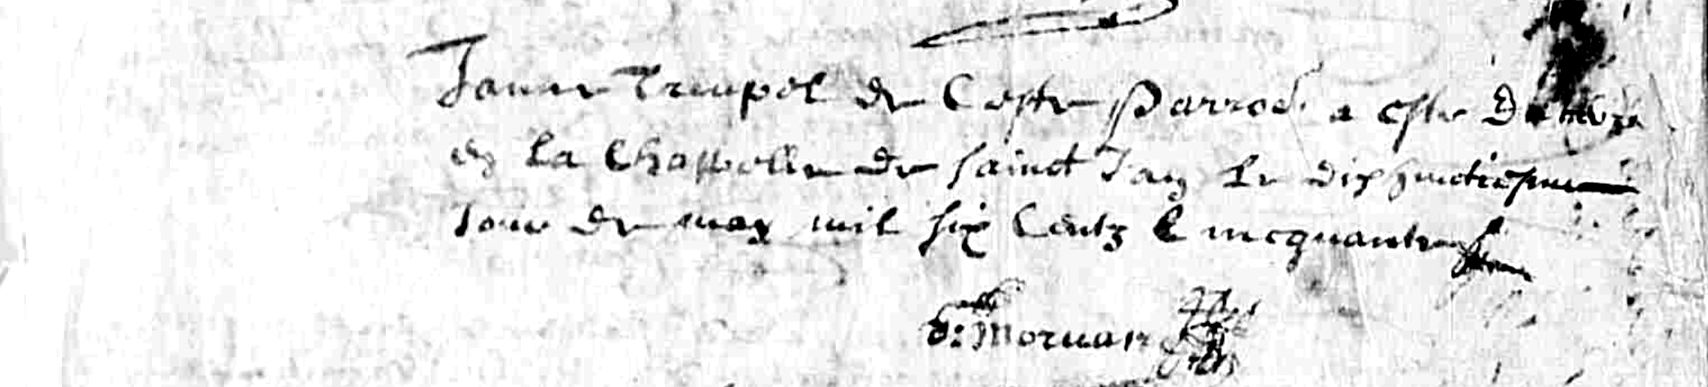 Janne Treupol de Ceste Parrod. a este
en la Chappelle de sainct Jan le dix huictiesme
Jour de may mil six Centz Cincquante
Moruan